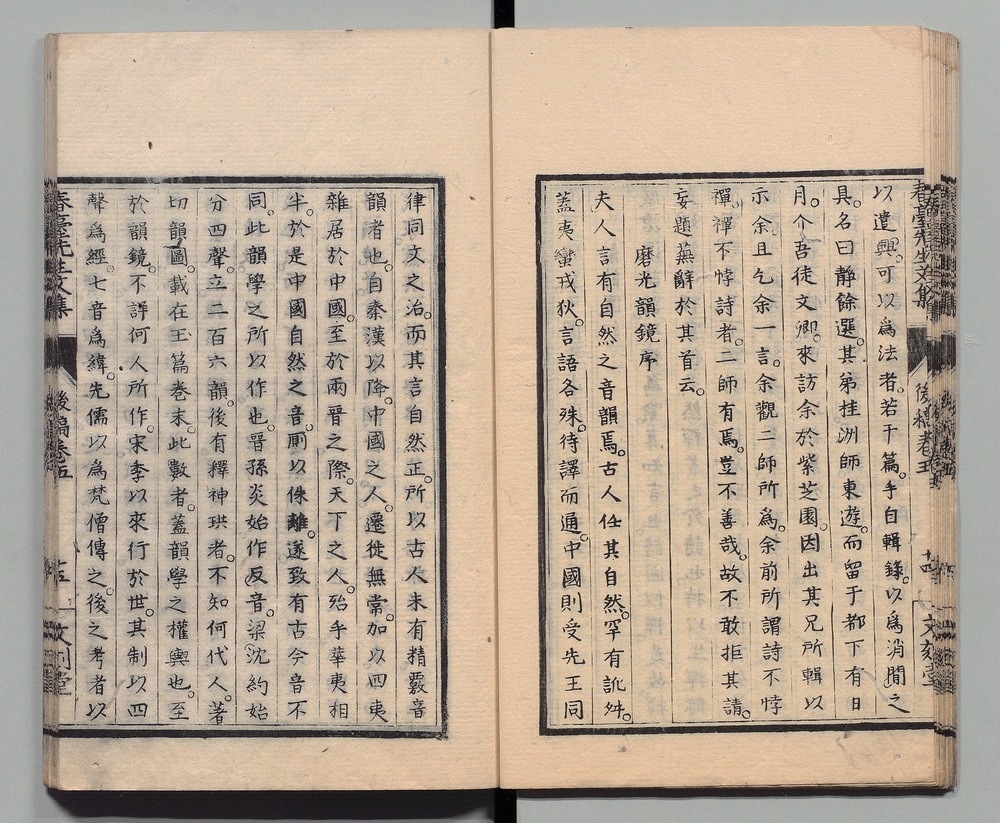 春臺先生文集 後稿卷五 十四 文刻堂
以遣興可以為法者若干篇。手自輯錄。以為消閒之
具。名曰靜餘選。其弟桂洲師東遊。而留于都下有日
月。介吾徒文卿。來訪余於紫芝園。因出其兄所輯以
示余。且乞余一言。余觀二師所為。余前所謂詩不悖
禪。禪不悖詩者。二師有焉。豈不善哉。故不敢拒其請。
妄題蕪辭於其首云。
磨光韻鏡序
夫人言有自然之音韻焉。古人任其自然。罕有訛舛。
蓋夷蠻戎狄。言語各殊。待譯而通。中國則受先王同
律同文之治。而其言自然正。所以古人未有精覈音
韻者也。自秦漢以降。中國之人。遷徙無常。加以四夷
雜居於中國。至於兩晉之際。天下之人。殆乎華夷相
半。於是中國自然之音。則以侏離。遂致有古今音不
同。此韻學之所以作也。晉孫炎始作反音。梁沈約始
分四聲。立二百六韻。後有釋神珙者。不知何代人。著
切韻圖。載在玉篇卷末。此數者。蓋韻學之權輿也。至
於韻鏡。不詳何人所作。宋季以來行於世。其制以四
聲為經。七音為緯。先儒以為梵僧傳之。後之考者以
春臺先生文集 後稿卷五 文刻堂